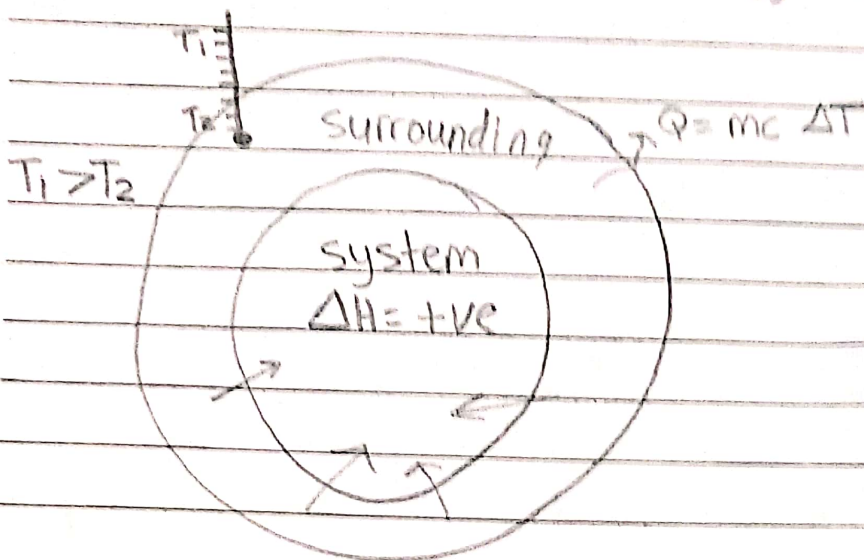 T₁
T₂
surrounding
Q = mc ΔT
T₁ > T₂
system
ΔH = +ve